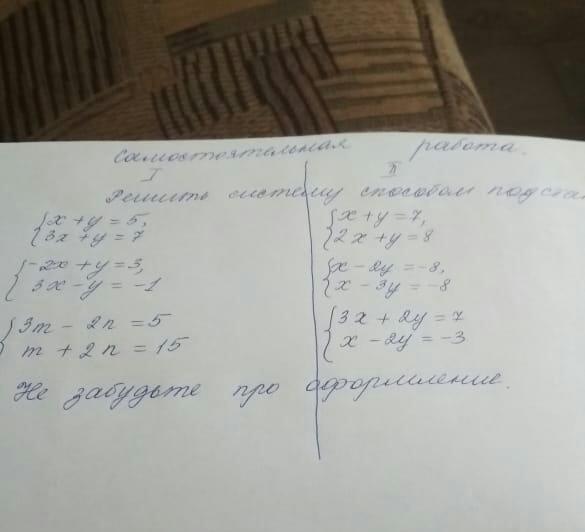 Самостоятельная работа.
I II
Решить систему способом
x + y = 5,
3x + y = 7
-2x + y = 3,
3x - y = -1
3m - 2n = 5
m + 2n = 15
x + y = 7,
2x + y = 8
x - 2y = -8,
x - 3y = -8
3x + 2y = 7
x - 2y = -3
Не забудьте про оформление.